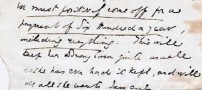 we must positively come off for a
payment of Six Hundred a year,
including everything. This will
keep her Drawing room quite as well
as she has ever had it kept, and will
do all she wants